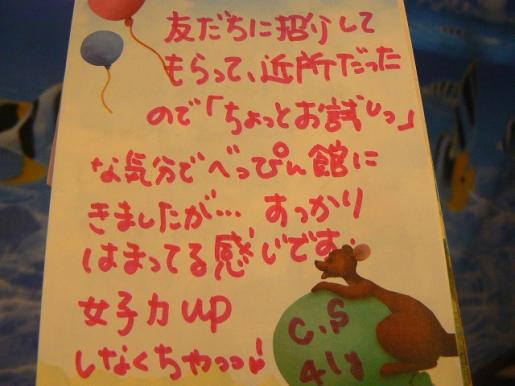 友だちに招介して
もらって、近所だった
ので「ちょっとお試しっ」
な気分でべっぴん館に
きましたが… すっかり
はまってる感じです。
女子力UP
しなくちゃっっ!
C.S
41才